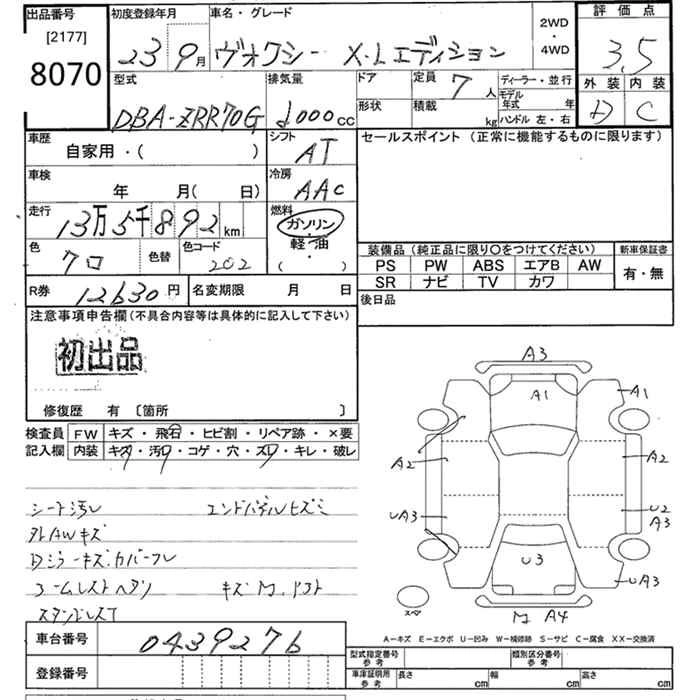 出品番号 初度登録年月 車名・グレード 2WD・4WD 評価点
[2177]
8070
23 9月 ヴォクシー X・Lエディション
3.5
型式 排気量 ドア 定員 7人 ディーラー・並行 外装 内装
DBA-ZRR70G cc 形状 積載 kg モデル年式 年
ハンドル 左・右
D C
車歴 シフト セールスポイント (正常に機能するものに限ります)
自家用・( ) AT
車検 冷房
年 月( 日) AAC
走行 燃料
13万5千892km ガソリン
軽・油
( )
色 クロ 色替 色コード 202
装備品 (純正品に限り○をつけてください) 新車保証書
PS PW ABS エアB AW 有・無
SR ナビ TV カワ
R券 12630円 名変期限 月 日
後日品
注意事項申告欄(不具合内容等は具体的に記入して下さい)
初出品
修復歴 有 〔箇所 〕
検査員 FW キズ・飛石・ヒビ割・リペア跡・×要
記入欄 内装 キズ・汚レ・コゲ・穴・スレ・キレ・破レ
A3
A1
A1
A2
A2
UA3
U2
A3
U3
UA3
スペア
A4
シート汚レ エンドパネルヒズミ
外AWキズ
Dミラーキズ.カバーワレ
A−キズ E−エクボ U−凹み W−補修跡 S−サビ C−腐食 XX−交換済
車台番号 0439276
登録番号
型式指定番号 参考 類別区分番号 参考
車庫証明用 参考 長さ cm 幅 cm 高さ cm